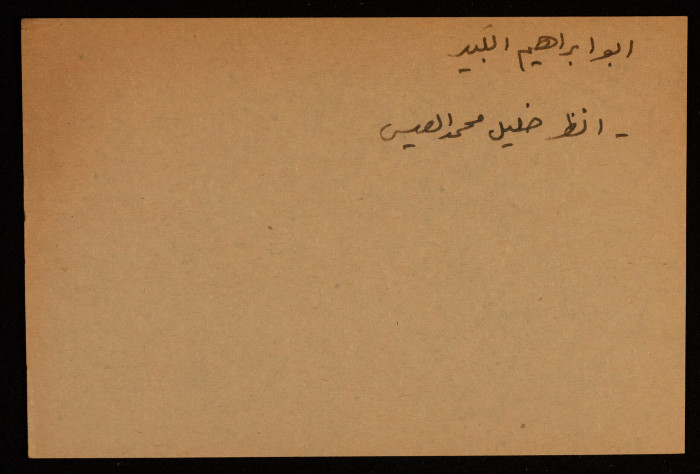 ابو ابراهيم الكبير
- انظر خليل محمد العيسى